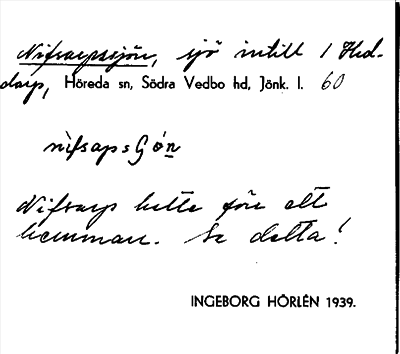 Nifsarpssjön, sjö intill 1 Hed-
darp, Höreda sn, Södra Vedbo hd, Jönk. l. 60
nìfsapsʃón
Nifsarp hette förr ett
hemman. Se detta!
INGEBORG HÖRLÉN 1939.